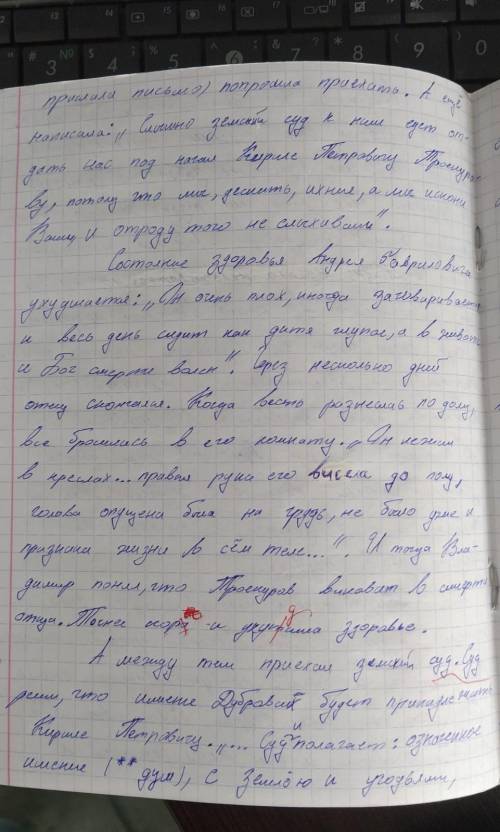 прислала письмо) попросила приехать. А ещё
написала: „Слышно земский суд к нам едет от-
дать нас под начал Кириле Петровичу Троекуро-
ву, потому что мы, дескать, ихние, а мы искони
Ваши, и отроду того не слыхивали".
Состояние здоровья Андрея Гавриловича
ухудшается: „Он очень плох, иногда заговаривается
и весь день сидит как дитя глупое, а в животе
и Бог смерти волен". Через несколько дней
отец скончался. Когда весть разнеслась по дому,
все бросились в его комнату. „Он лежал
в креслах... правая рука его висела до полу,
голова опущена была на грудь, не было уже и
признака жизни в сём теле...". И тогда Вла-
димир понял, что Троекуров виноват в смерти
отца. Тоже и здоровье.
А между тем приехал земский суд. Суд
решил, что имение Дубровский будет принадлежать
Кириле Петровичу. „... Суд и полагает: означенное
имение (** душ), с землёю и угодьями,